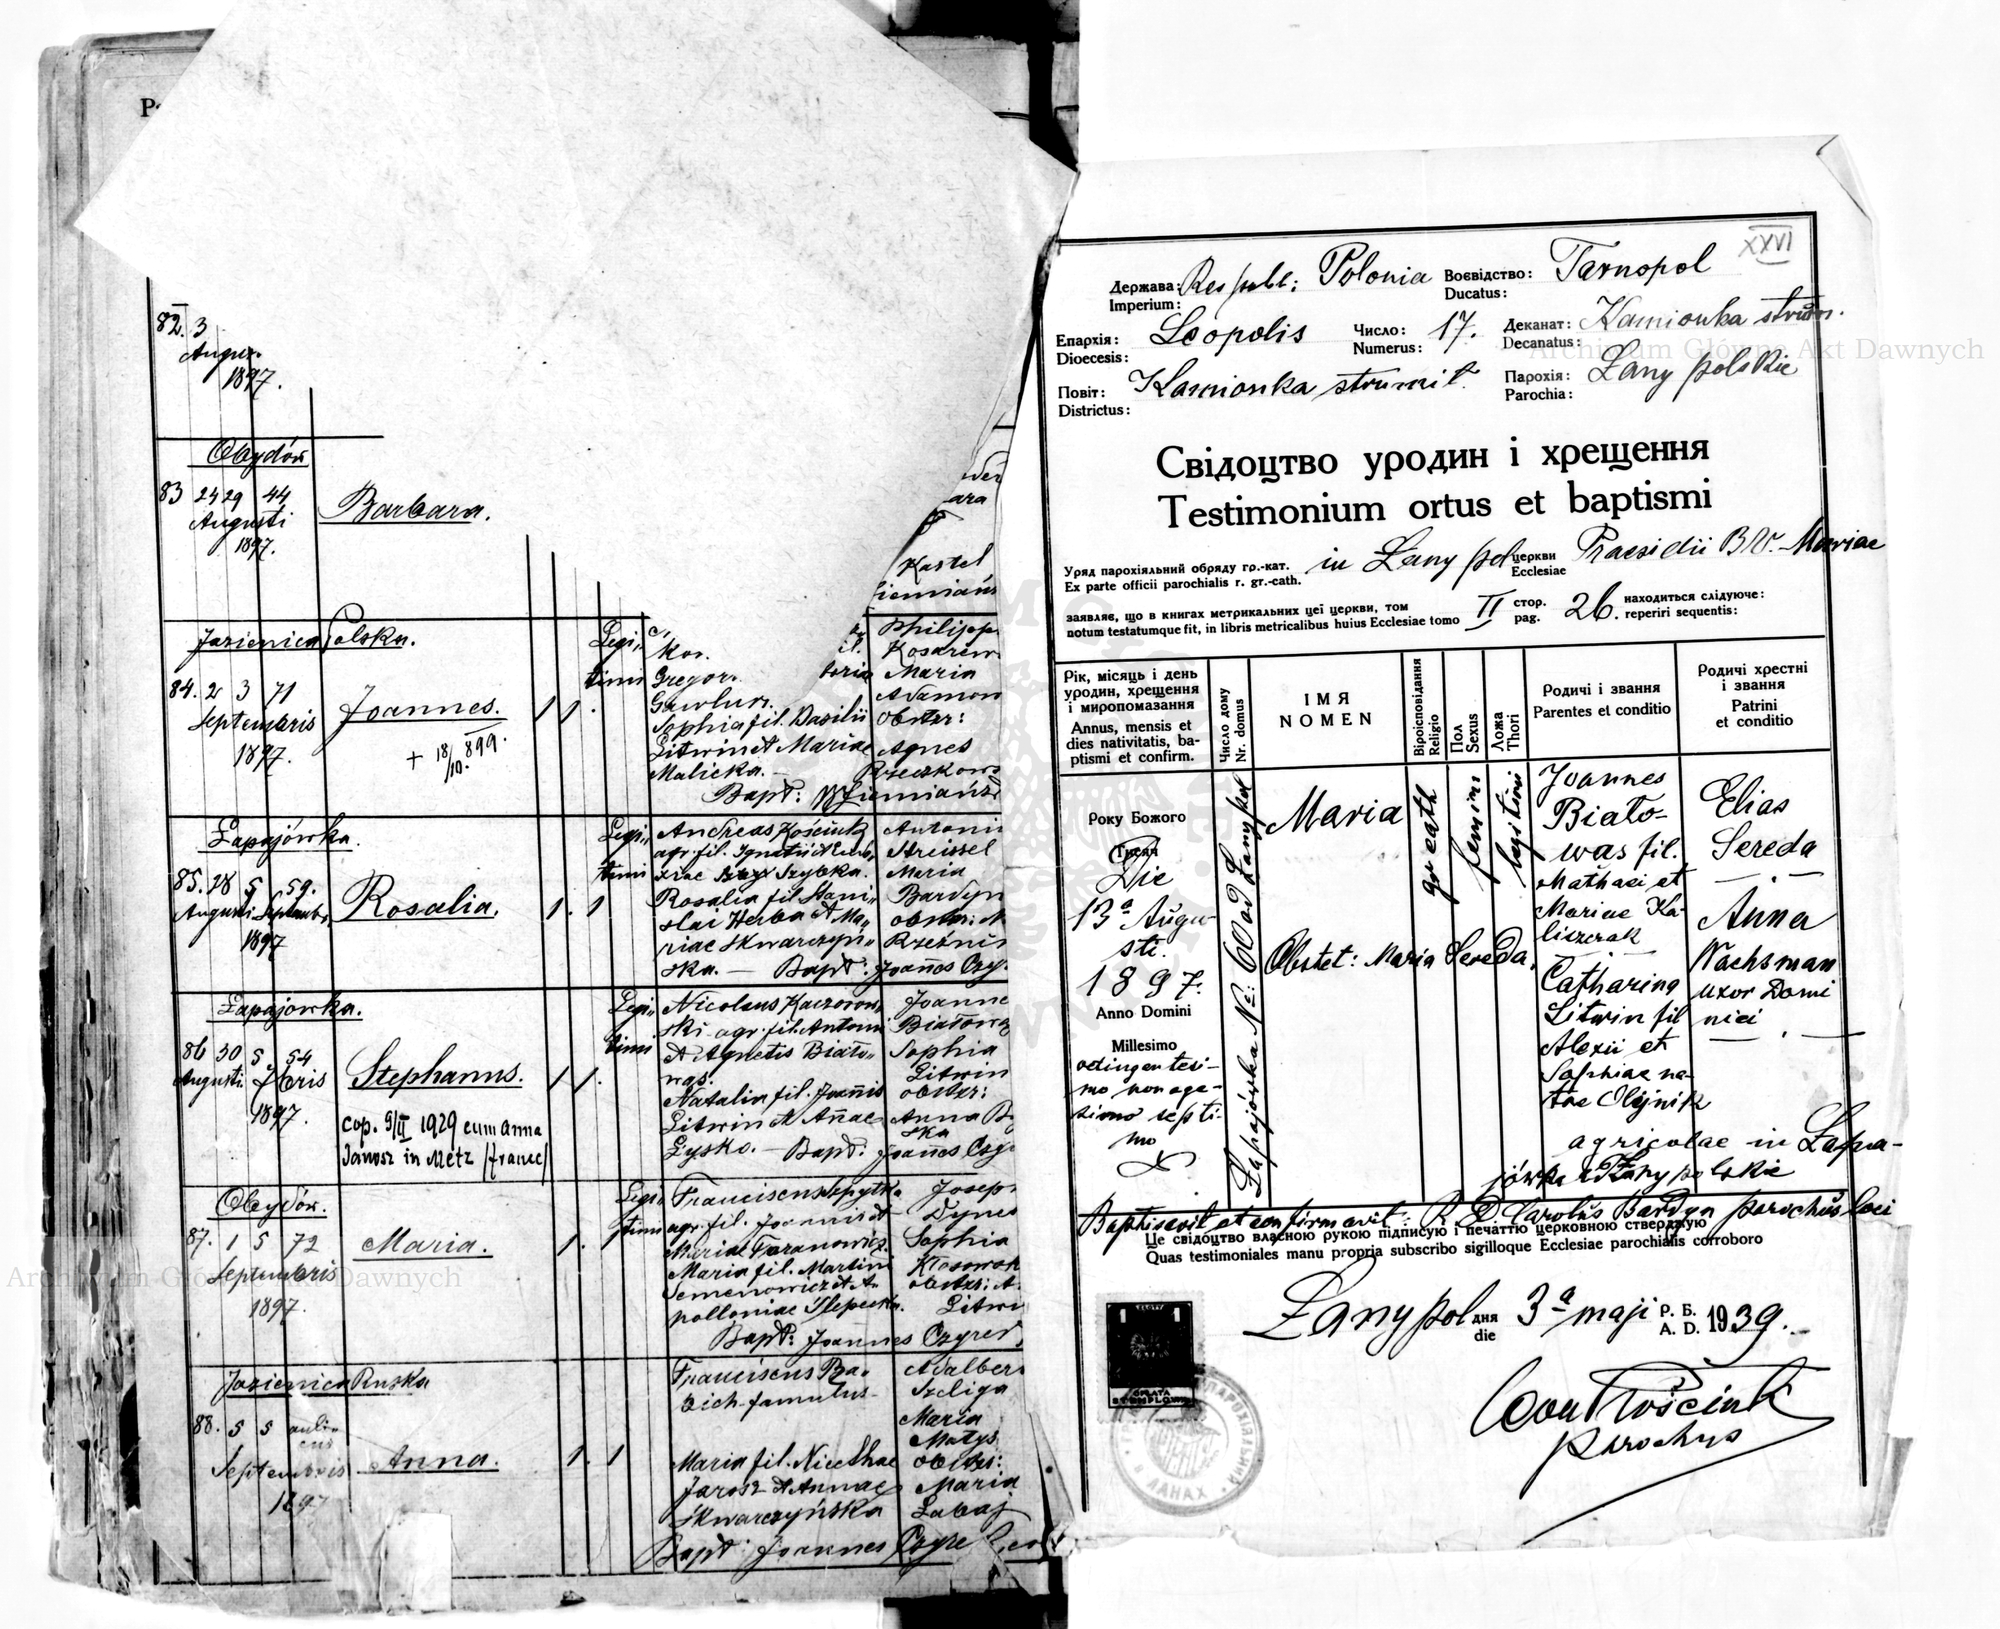 82. 3
August.
1897.
Obydów
83 24 29 44
Augusti
1897.
Barbara.
Kastel
Jazienica Polska.
84. 2 3 71
Septembris
1897.
Joannes.
+ 18/10. 899.
Legi„
timi
Gregor.
Sophia fil. Basilii
Litwin et Mariae
Malicka. —
Philipp
Kosarew
Maria
Adamow
obster:
Agnes
Rzeczkows
Łapajówka.
85. 28 5 59.
Augusti Septembr.
1897
Rosalia.
1. 1
Legi„
timi
Andreas Kościuk
agr. fil. Ignatii et
Szybka.
Rosalia fil. Stani„
slai Herba et Ma„
riae Skwarczyń„
ska. — Bapt: Joañes Czy
Antoni
Streissel
Maria
Bardyn
obster: M
Rzeźnis
Łapajówka.
86 30 5 54
Augusti. 7bris
1897.
Stephanus.
cop. 9/II 1929 cum Anna
Janosz in Metz /Franc/
Legi„
timi
Nicolaus Kaczorow„
ski agr. fil. Antoni
et Agnetis Biało„
was.
Natalia fil. Joañis
Litwin et Añae
Łysko. — Bapt: Joañes Czy
Joanne
Białową
Sophia
Litwin
obster:
Anna B
ska
Obydów.
87. 1 5 72
Septembris
1897.
Maria.
Legi„
timi
Franciscus Szpytka
agr. fil. Joannis et
Mariae Taranowicz.
Maria fil. Martini
Semenowicz et A„
polloniae Ślepecka.
Bapt: Joannes Czyrer
Joseph
Dynes
Sophia
Kłosowsk
obster: A.
Litwi
Jazienica Ruska
88. 5 5 auli„
cus
Septembris
1897
Anna.
1. 1
Franciscus Ba„
bich famulus
Maria fil. Nicethae
Jarosz et Annae
Skwarczyńska
Bapt: Joannes Czyre
Adalber
Szeliga
Maria
Matys
obster:
Maria
Łabaj
XXVI
Держава: Respubl: Polonia Воєвідство: Tarnopol
Imperium: Ducatus:
Епархія: Leopolis Число: 17. Деканат: Kamionka strum.
Dioecesis: Numerus: Decanatus:
Повіт: Kamionka strumił. Парохія: Łany polskie
Districtus: Parochia:
Свідоцтво уродин і хрещення
Testimonium ortus et baptismi
Уряд парохіяльний обряду гр.-кат. in Łany pol церкви Praesidii B.V. Mariae
Ex parte officii parochialis r. gr.-cath. Ecclesiae
заявляє, що в книгах метрикальних цеї церкви, том II стор. 26. находиться слідуюче:
notum testatumque fit, in libris metricalibus huius Ecclesiae tomo pag. reperiri sequentis:
Рік, місяць і день
уродин, хрещення
і миропомазання
Annus, mensis et
dies nativitatis, ba-
ptismi et confirm.
Число дому
Nr. domus
ІМЯ
NOMEN
Віроісповідання
Religio
Пол
Sexus
Ложа
Thori
Родичі і звання
Parentes et conditio
Родичі хрестні
і звання
Patrini
et conditio
Року Божого
Тисяч
Die
13ª Augu-
sti.
1897.
Anno Domini
Millesimo
octingentesi-
mo nonage-
simo septi-
mo
Łapajówka No: 60 ad Łany pol
Maria
Obstet: Maria Sereda.
gr cath
femini
legitimi
Joannes
Biało-
was fil.
Mathaei et
Mariae Ka-
liszczak
Catharina
Litwin fil
Alexii et
Sophiae na-
tae Olijnik
agricolae in Łapa-
jówka ad Łany polskie
Elias
Sereda
Anna
Wachsman
uxor Domi
nici
Baptisavit et confirmavit: R. D. Carolus Bardyn parochus loci
Це свідоцтво власною рукою підписую і печаттю церковною стверджую
Quas testimoniales manu propria subscribo sigilloque Ecclesiae parochialis corroboro
Łany pol дня 3ª maji Р. Б. 1939.
die A. D.
1 ZŁOTY 1
OPŁATA
STEMPLOWA
parochus
Archiwum Główne Akt Dawnych
Archiwum Główne Akt Dawnych